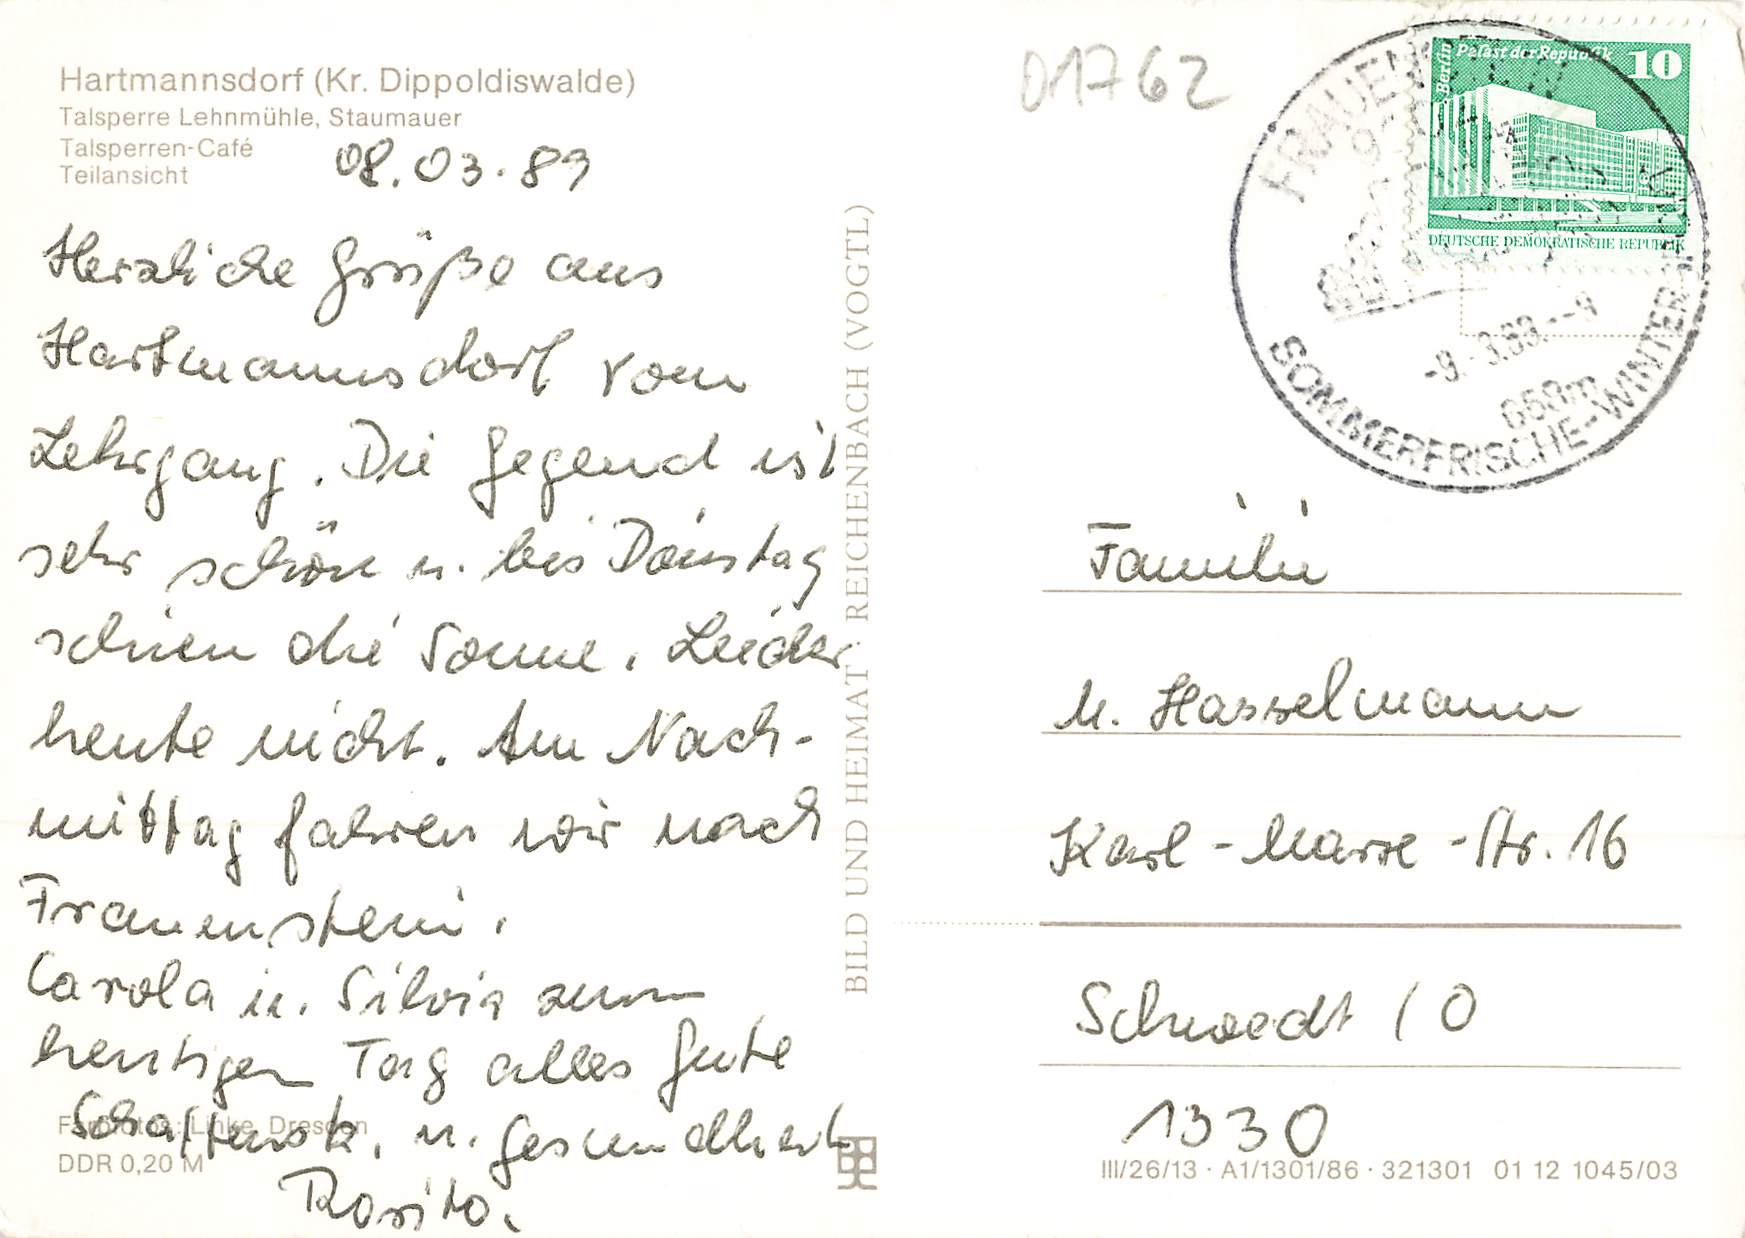 Hartmannsdorf (Kr. Dippoldiswalde)
Talsperre Lehnmühle, Staumauer
Talsperren-Café
Teilansicht
08.03.89
Herzliche Grüße aus
Hartmannsdorf vom
Lehrgang. Die Gegend ist
sehr schön u. bis Dienstag
schien die Sonne. Leider
heute nicht. Am Nach-
mittag fahren wir nach
Frauenstein.
Carola u. Silvia zum
heutigen Tag alles Gute
Schaffenskr. u. Gesundheit
Rosita.
Farbfotos: Linke, Dresden
DDR 0,20 M
BILD UND HEIMAT · REICHENBACH (VOGTL)
01762
Berlin
Palast der Republik
10
DEUTSCHE DEMOKRATISCHE REPUBLIK
FRAUENSTEIN
-9.-3.89.--9
SOMMERFRISCHE-WINTER
Familie
M. Hasselmann
Karl-Marx-Str. 16
Schwedt / O
1330
III/26/13 · A1/1301/86 · 321301 01 12 1045/03